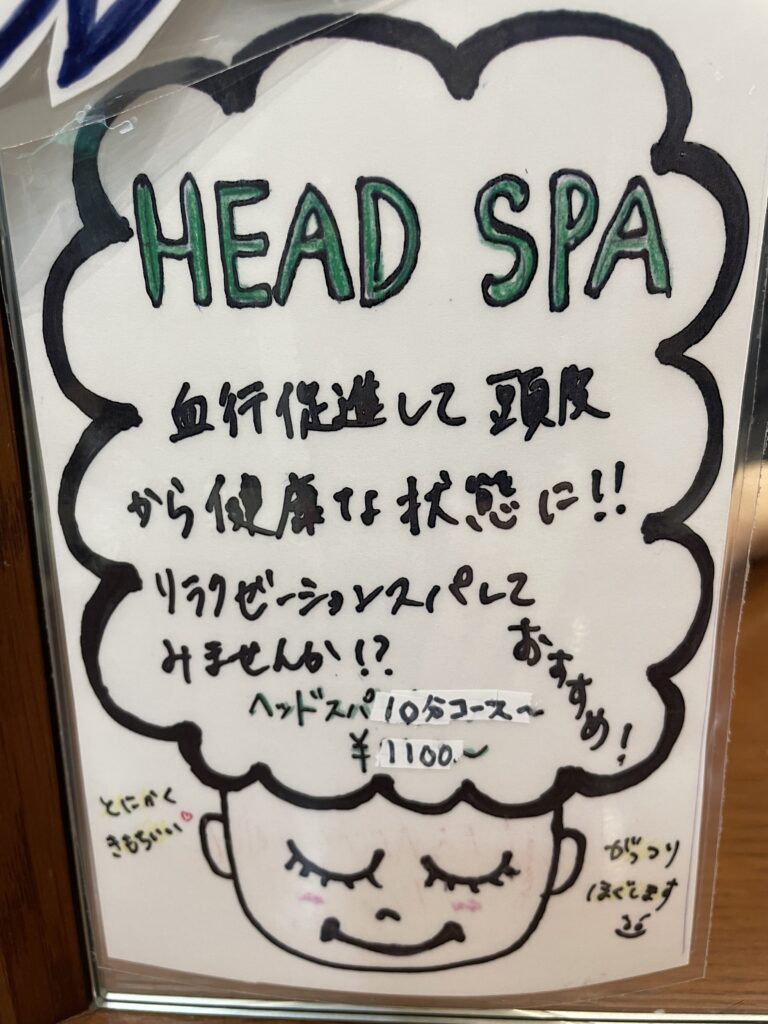 HEAD SPA
血行促進して頭皮
から健康な状態に!!
リラクゼーションスパして
みませんか!?
おすすめ!
ヘッドスパ 10分コース~
¥1100.~
とにかく
きもちいい♡
がっつり
ほぐします